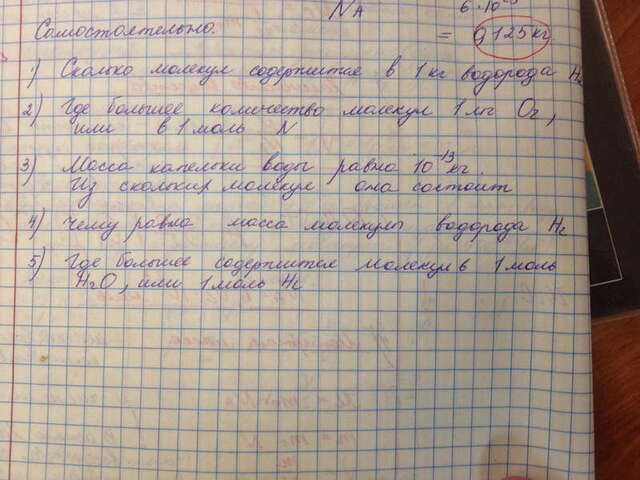 NA 6·10²³
Самостоятельно. = 0,125 кг
1) Сколько молекул содержится в 1 кг водорода H₂
2) Где большее количество молекул 1 моль O₂,
или в 1 моль N
3) Масса капельки воды равна 10⁻¹³ кг.
Из скольких молекул она состоит
4) Чему равна масса молекулы водорода H₂
5) Где большее содержится молекул в 1 моль
H₂O, или 1 моль H₂